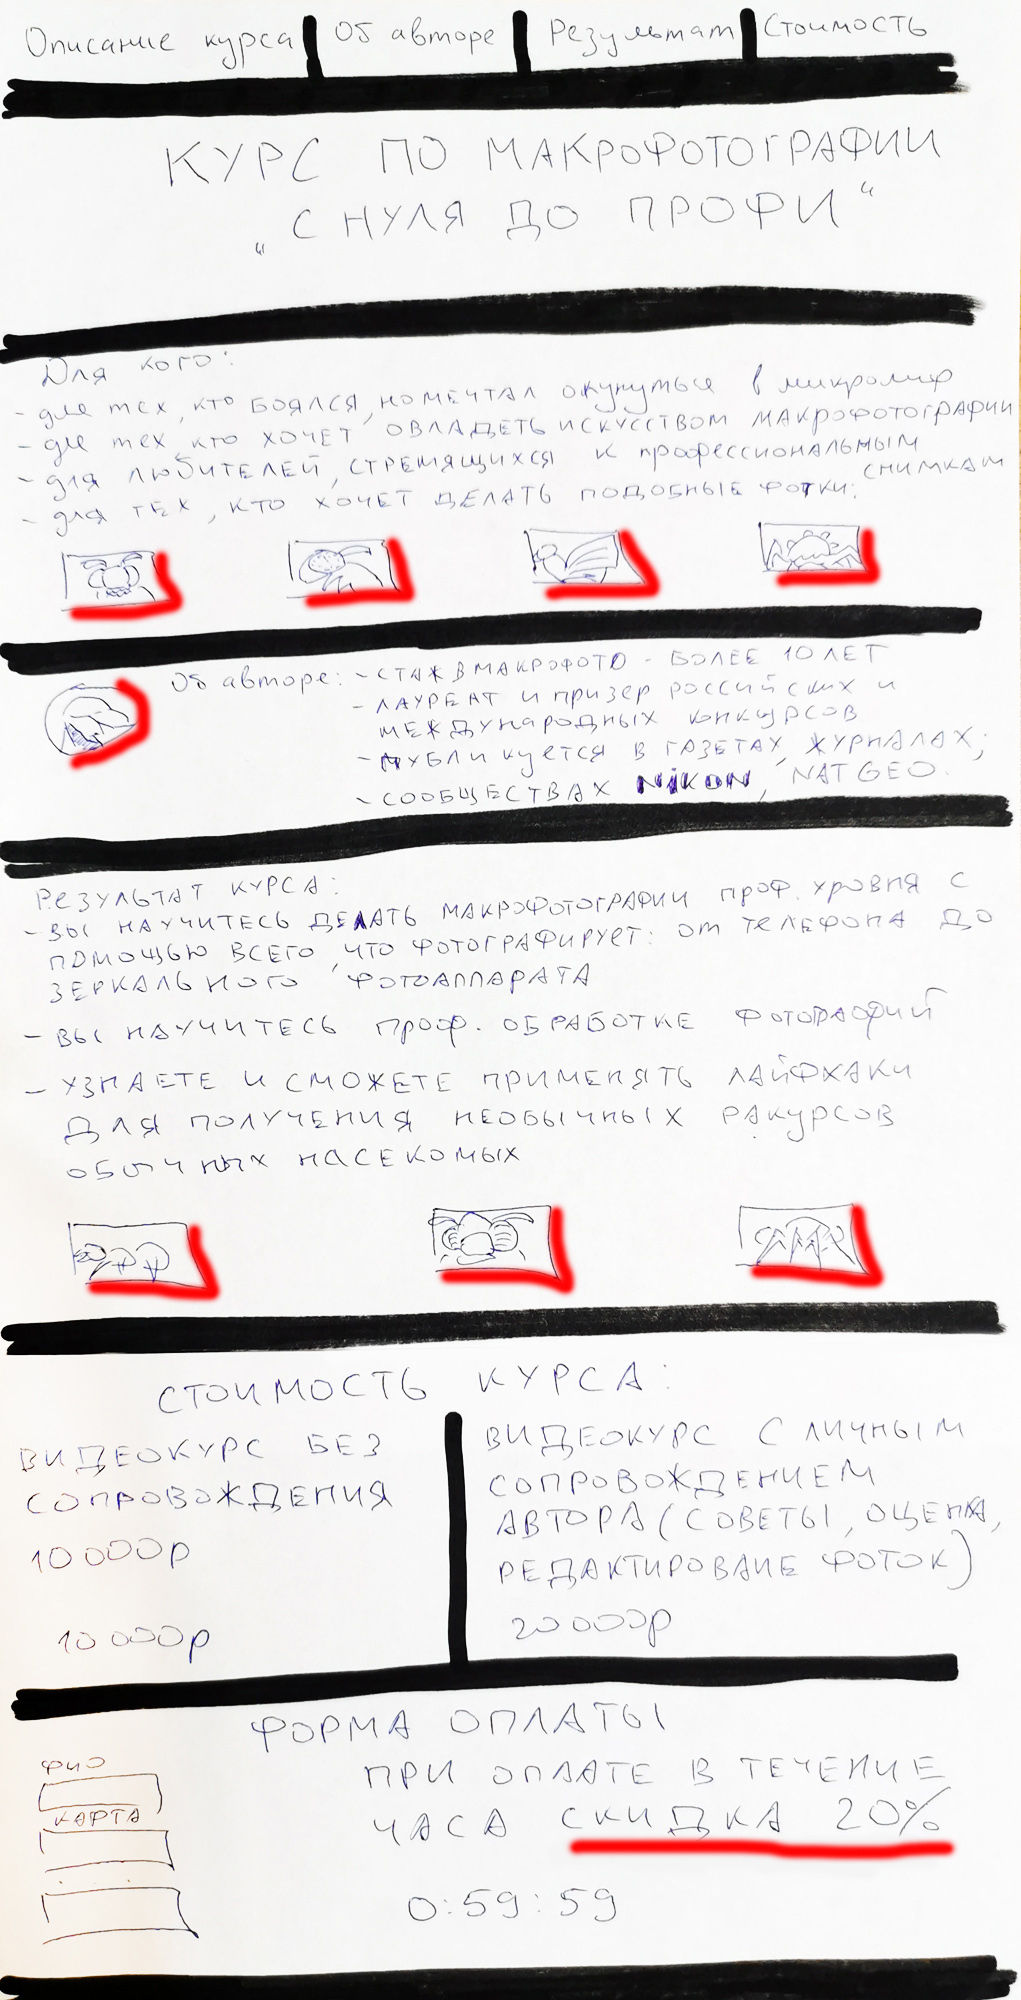 Описание курса Об авторе Результат Стоимость
КУРС ПО МАКРОФОТОГРАФИИ
„С НУЛЯ ДО ПРОФИ“
Для кого:
- для тех, кто БОЯЛСЯ, НО МЕЧТАЛ окунуться в микромир
- для тех, кто ХОЧЕТ ОВЛАДЕТЬ ИСКУССТВОМ МАКРОФОТОГРАФИИ
- для ЛЮБИТЕЛЕЙ, СТРЕМЯЩИХСЯ К профессиональным
СНИМКАМ
- для ТЕХ, КТО ХОЧЕТ ДЕЛАТЬ ПОДОБНЫЕ ФОТКИ:
Об авторе: - СТАЖ В МАКРОФОТО - БОЛЕЕ 10 ЛЕТ
- ЛАУРЕАТ и призер российских и
МЕЖДУНАРОДНЫХ КОНКУРСОВ
- публикуется в ГАЗЕТАХ, ЖУРНАЛАХ;
- СООБЩЕСТВАХ NiKON, NAT GEO.
РЕЗУЛЬТАТ КУРСА:
- ВЫ НАУЧИТЕСЬ ДЕЛАТЬ МАКРОФОТОГРАФИИ ПРОФ. УРОВНЯ С
ПОМОЩЬЮ ВСЕГО, ЧТО ФОТОГРАФИРУЕТ: ОТ ТЕЛЕФОНА ДО
ЗЕРКАЛЬНОГО ФОТОАППАРАТА
- ВЫ НАУЧИТЕСЬ проф. ОБРАБОТКЕ ФОТОГРАФИЙ
- УЗНАЕТЕ И СМОЖЕТЕ ПРИМЕНЯТЬ ЛАЙФХАКИ
ДЛЯ ПОЛУЧЕНИЯ НЕОБЫЧНЫХ РАКУРСОВ
ОБЫЧНЫХ НАСЕКОМЫХ
СТОИМОСТЬ КУРСА:
ВИДЕОКУРС БЕЗ
СОПРОВОЖДЕНИЯ
10 000р
10 000р
ВИДЕОКУРС С ЛИЧНЫМ
СОПРОВОЖДЕНИЕМ
АВТОРА (СОВЕТЫ, ОЦЕНКА,
РЕДАКТИРОВАНИЕ ФОТОК)
20 000р
ФОРМА ОПЛАТЫ
ФИО
КАРТА
ПРИ ОПЛАТЕ В ТЕЧЕНИЕ
ЧАСА СКИДКА 20%
0:59:59